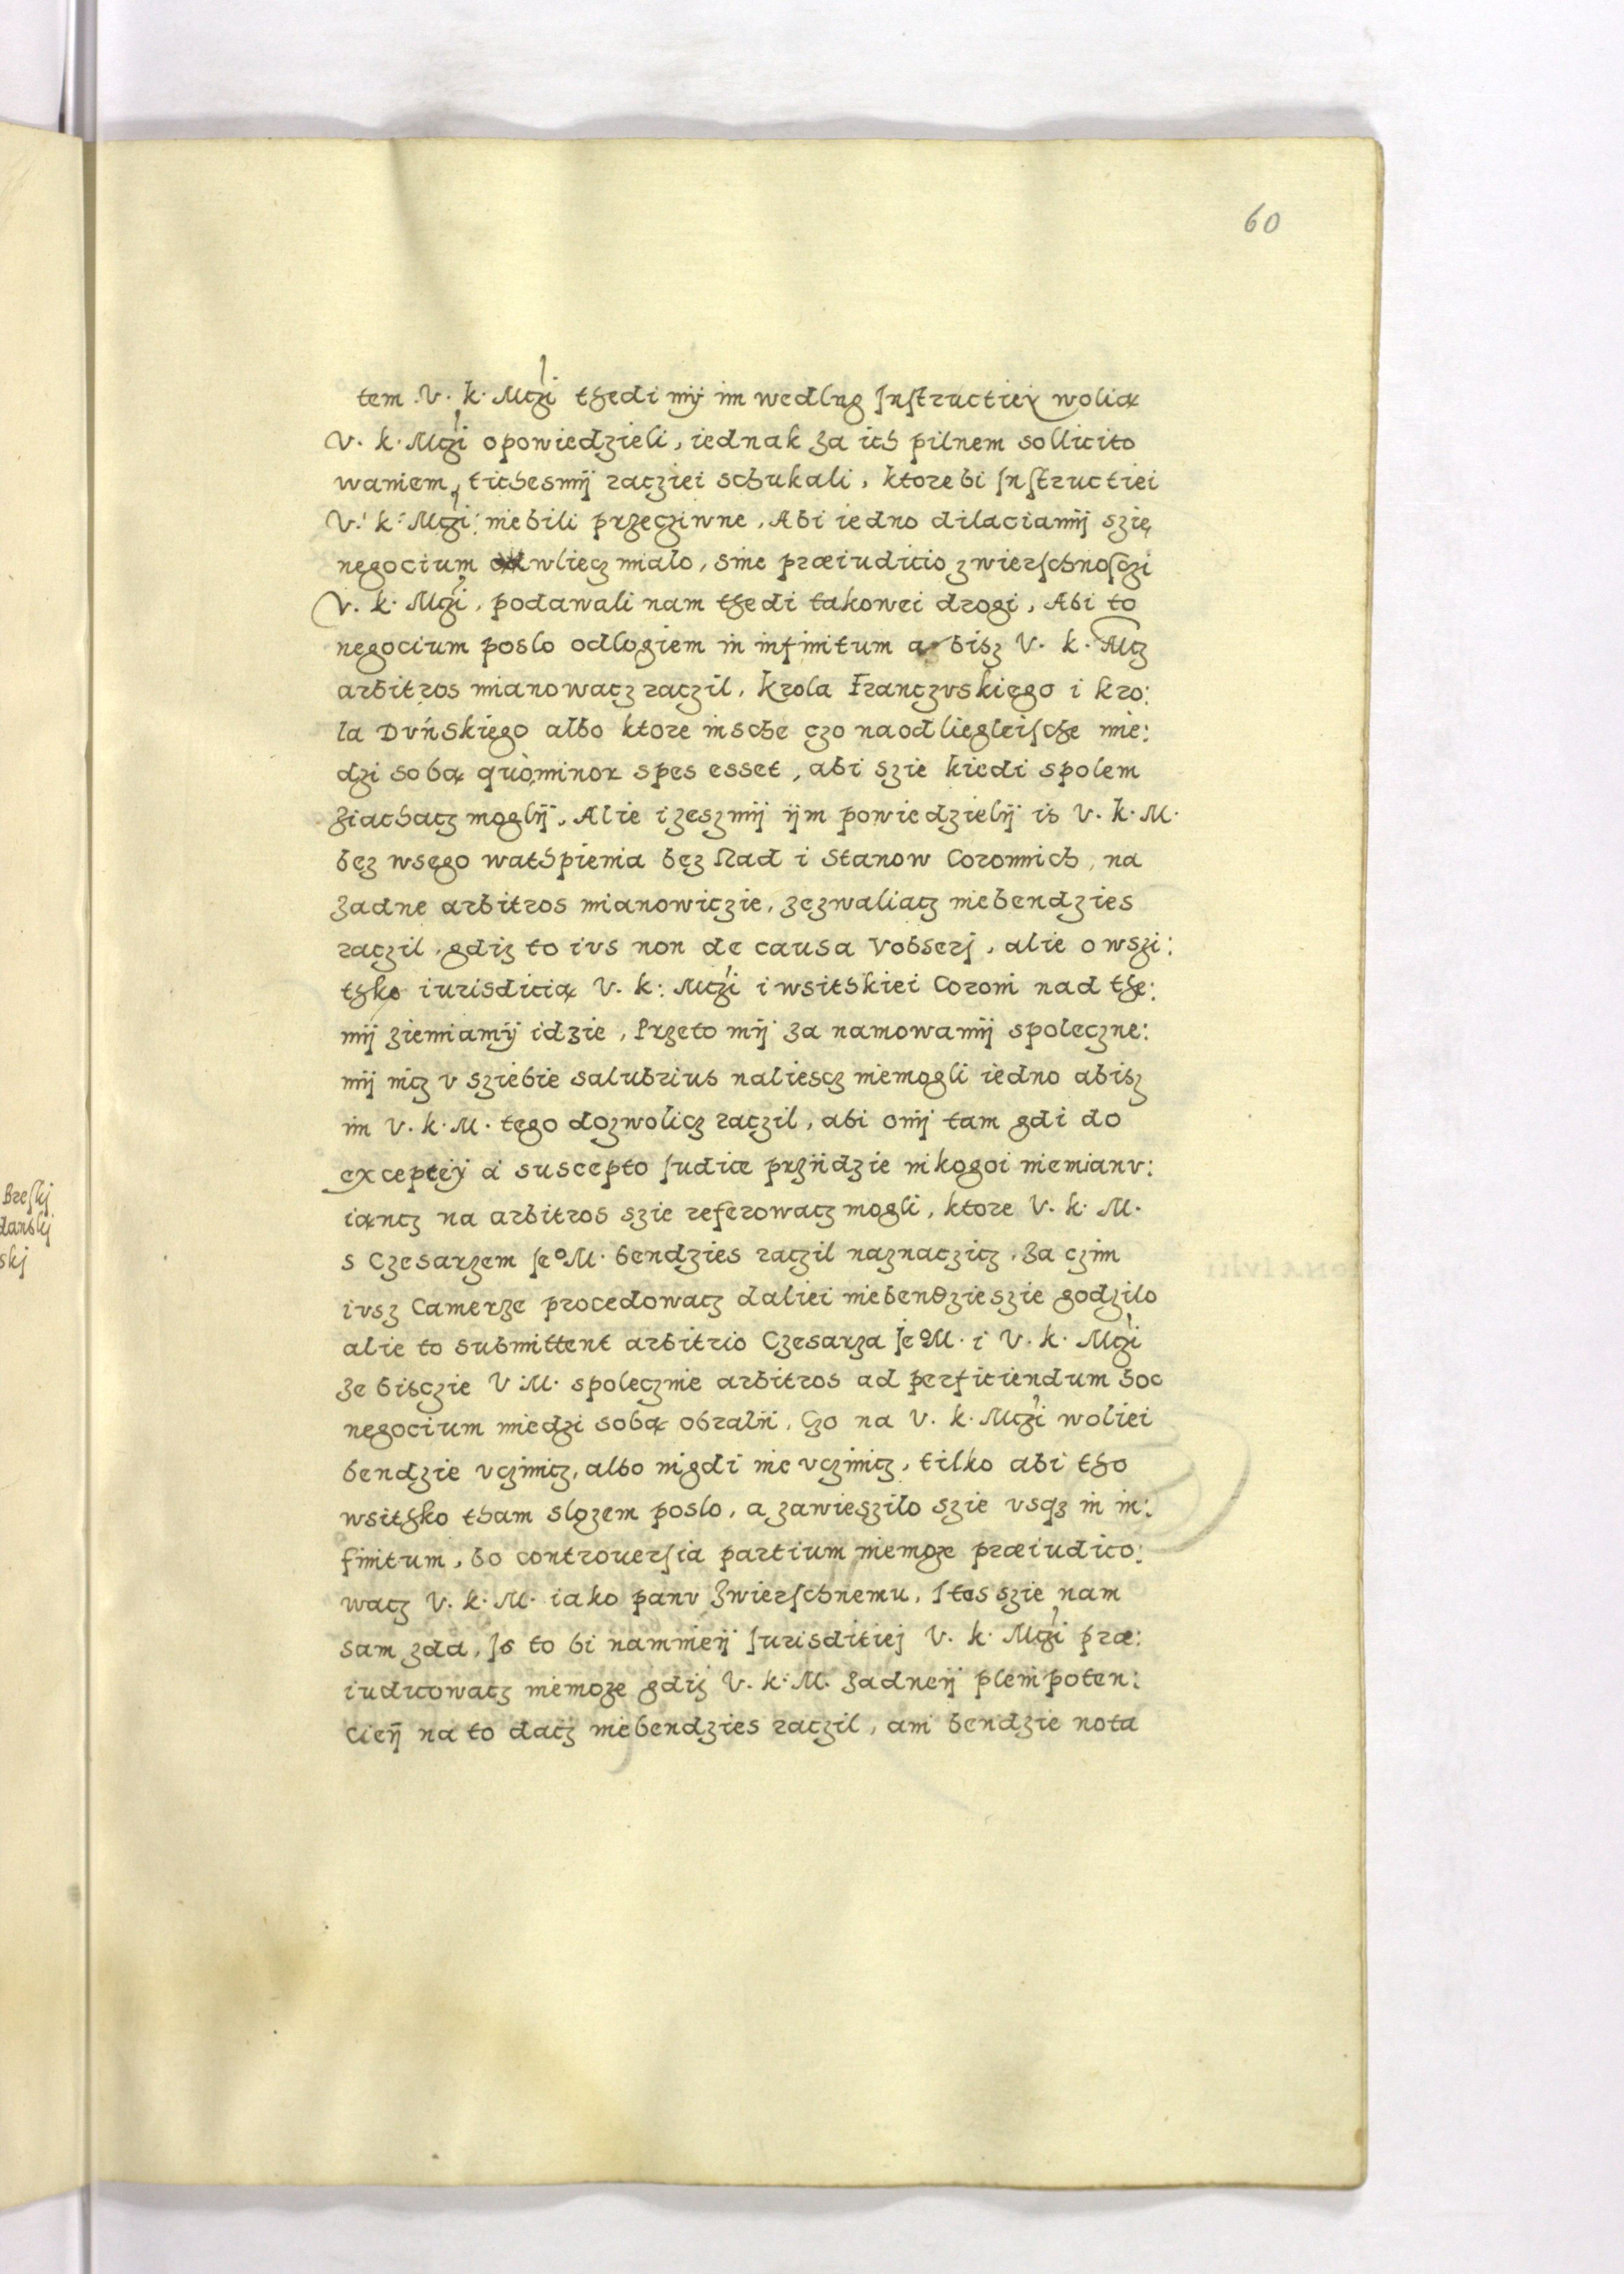 60
tem V. k. Mczi thedi mÿ im wedlug Instructieÿ wolią
V. k. Mczi opowiedzieli, iednak za ich pilnem sollicito
waniem, tichesmÿ racziei schukali, ktorebi Instructiei
V. k. Mczi niebili przecziwne, Abi iedno dilaciamÿ szię
negocium wliecz mialo, sine præiudicio zwierschnosczi
V. k. Mczi, podawali nam thedi takowei drogi, Abi to
negocium poslo odlogiem in infinitum a bisz V. k. Mcz
arbitros mianowacz raczil, krola Franczvskięgo i kro:
la Dvńskięgo albo ktore insche czo naodliegleische mie:
dzi sobą quò minor spes esset, abi szie kiedi spolem
ziachacz moglÿ, Alie i zeszmÿ ÿm powiedzielÿ is V. k. M.
bęz wsęgo wathpienia bęz Rad i Stanow Coronnich, na
zadne arbitros mianowiczie, zezwaliacz niebendzies
raczil, gdiz to ivs non de causa Vobserj, alie o wszi:
thko iurisdicią V. k: Mczi i wsithkiei Coroni nad the:
mÿ ziemiamÿ idzie, Przeto mÿ za namowamÿ spoleczne:
mÿ nicz v sziebie salubrius naliescz niemogli iedno abisz
im V. k. M. tęgo dozwolicz raczil, abi onÿ tam gdi do
exceptiej à suscepto Iudice przÿdzie nikogoi niemianv:
iąncz na arbitros szie referowacz mogli, ktore V. k. M.
s Czesarzem Ieº M. bendzies raczil naznaczicz, za czim
ivsz Camerze procedowacz daliei niebendzieszie godzilo
alie to submittent arbitrio Czesarza Ieº M. i V. k. Mczi
ze bisczie V M. spolecznie arbitros ad perficiendum hoc
negocium miedzi sobą obralÿ, Czo na V. k. Mczi woliei
bendzie vczinicz, albo nigdi nie vczinicz, tilko abi tho
wsithko tham slozem poslo, a zawieszilo szie vsqz in in:
finitum, bo controuersia partium niemoze præiudico:
wacz V. k. M. iako panv zwierschnemu, Itos szie nam
sam zda, Is to bi namnieÿ Iurisditiej V. k. Mczi præ:
iudicowacz niemoze gdiz V. k. M. zadneÿ plenipoten:
cieÿ na to dacz niebendzies raczil, ani bendzie nota
Breskj
danskj
skj